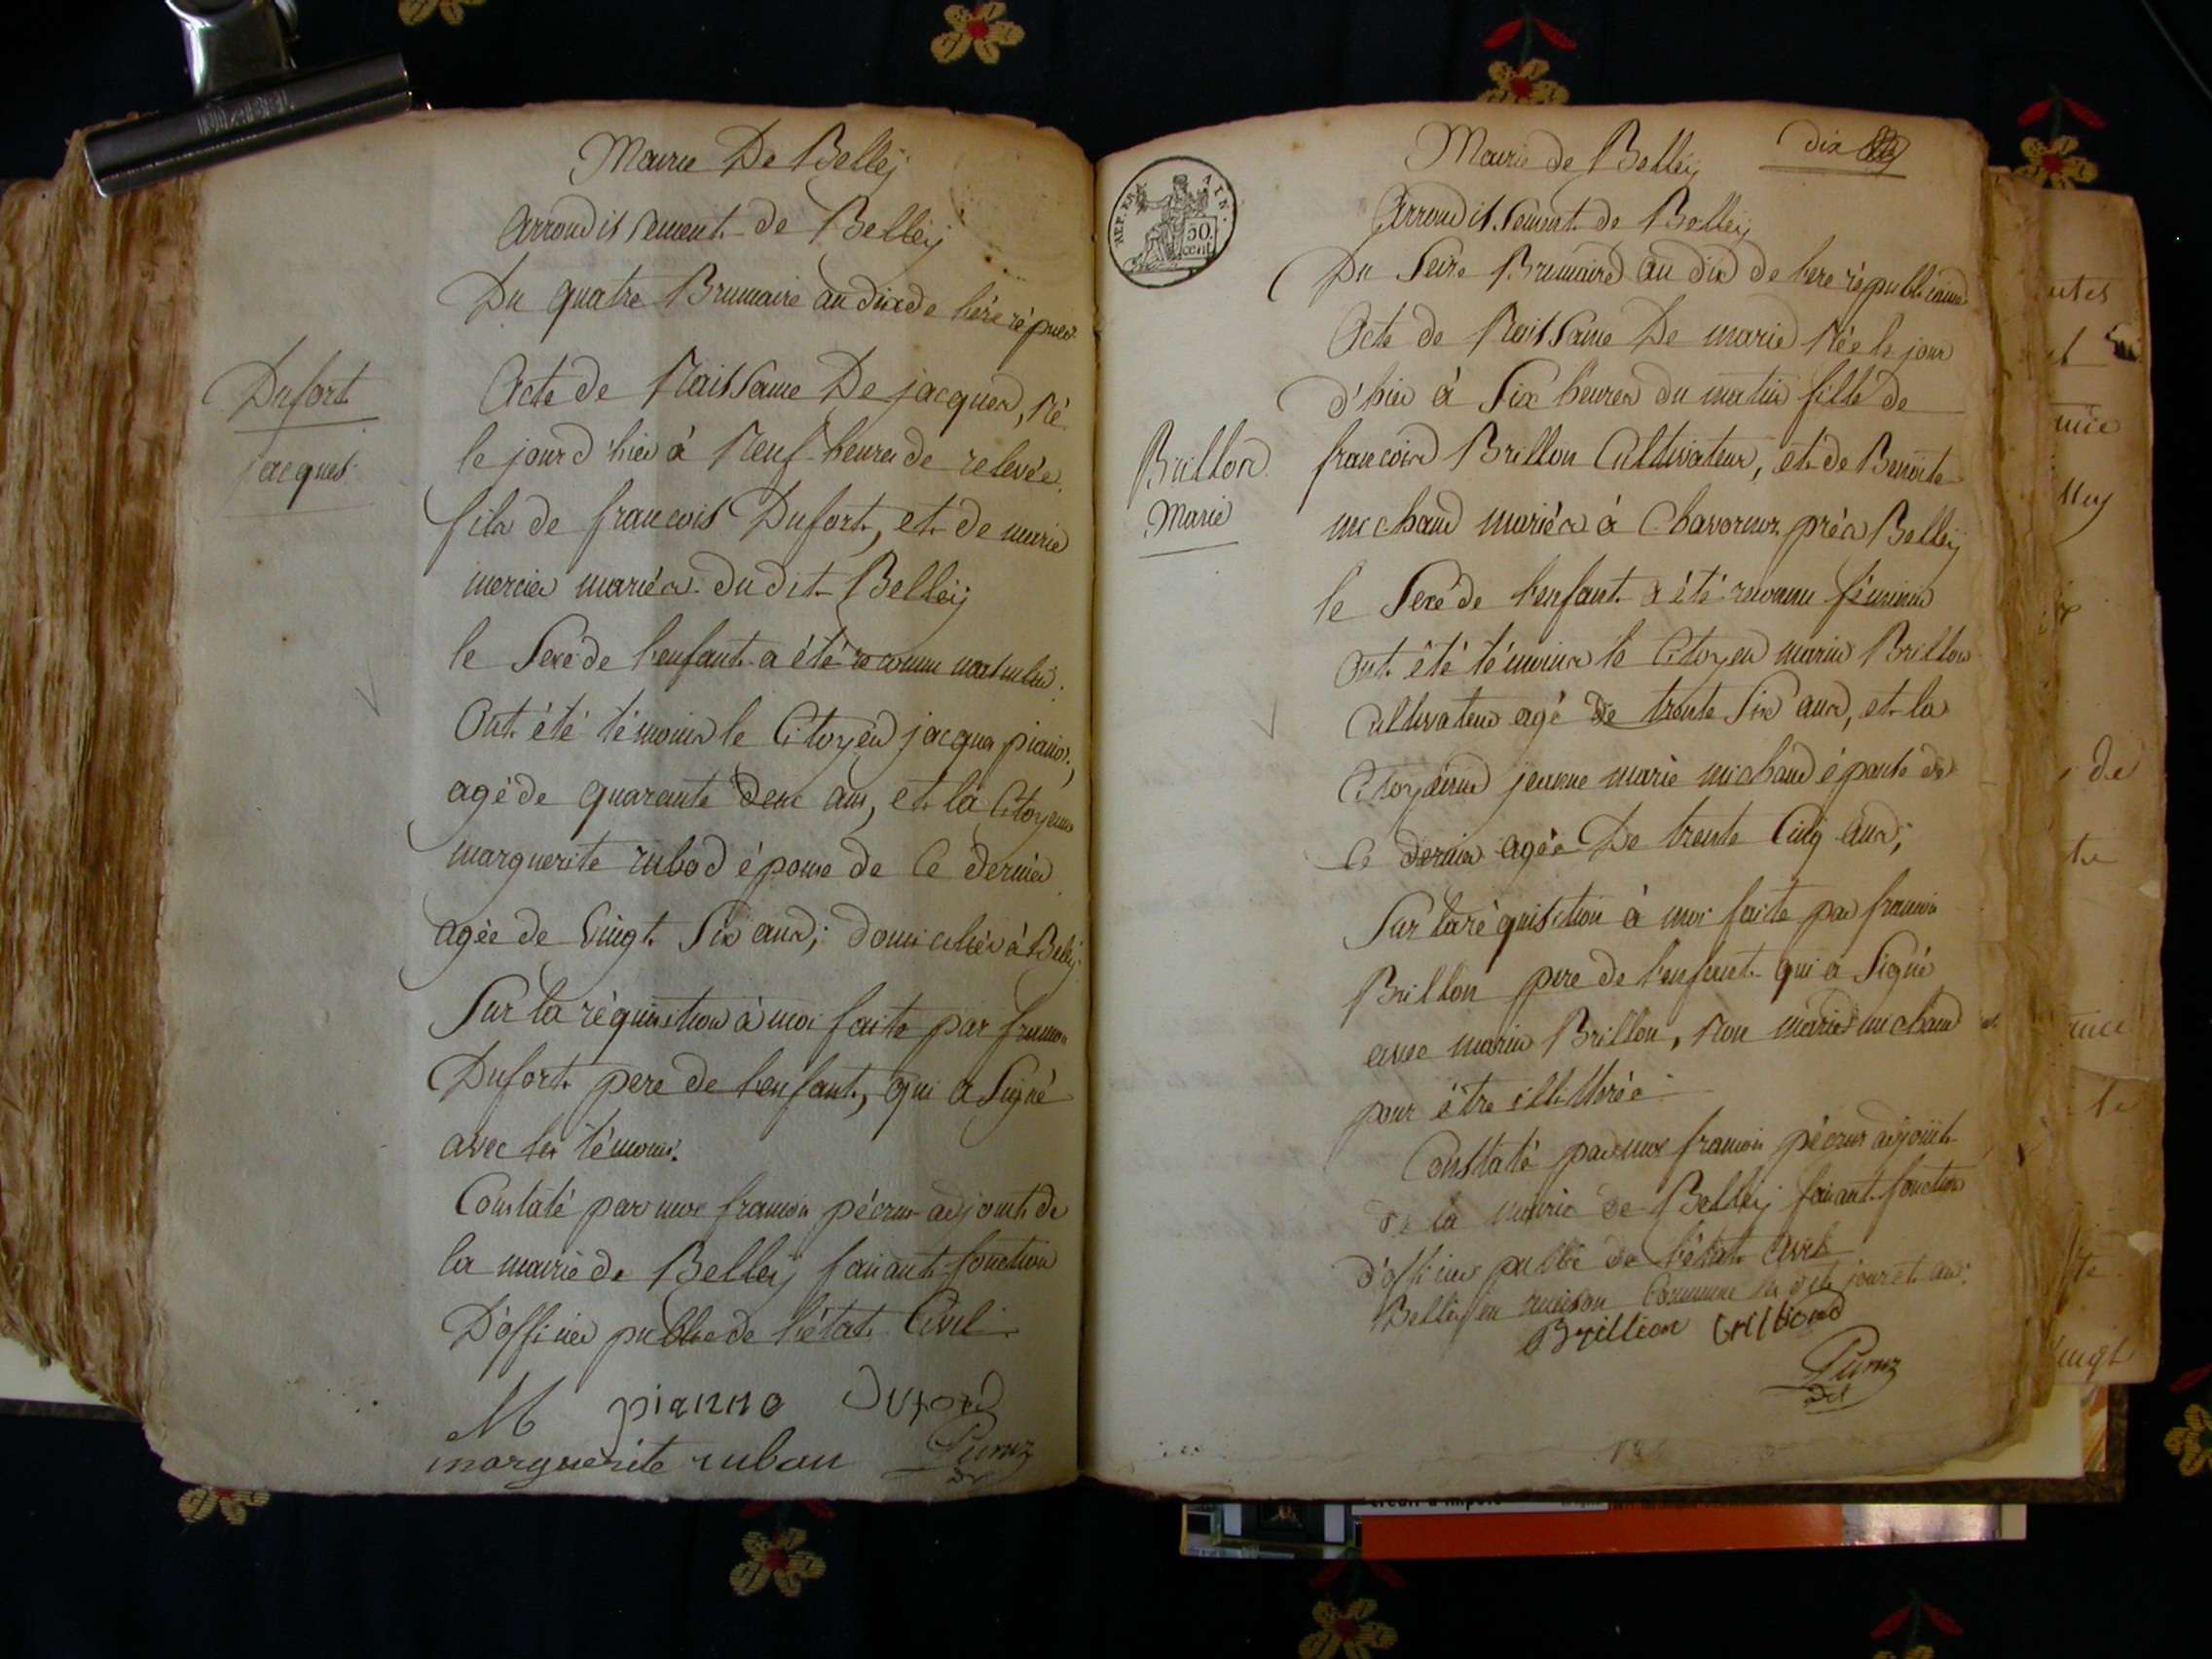 Mairie De Belley
Arrondissement de Belley
Du quatre Brumaire an dix de l'ère répub
Dufort
jacques
Acte de Naissance De jacques, Né
le jour d'hier à Neuf heures de relevée
fils de francois Dufort, et de marie
mercier mariés dudit Belley
le Sexe de l'enfant a été reconnu masculin.
Ont été témoins le Citoyen jacques
agé de quarante deux ans, et la Citoyenne
marguerite rubod épouse de Ce dernier
agée de Vingt Six ans; domiciliés à Belley
Sur la réquisition à moi faite par francois
Dufort pere de l'enfant, qui a Signé
avec les témoins.
Constaté par moi francois adjoint de
la mairie de Belley faisant fonction
D'officier public de l'état Civil
M pianna Duford
marguerite ruban
Mairie de Belley dix
REP. FRA.
50.
cent
Arrondissement de Belley
Du Seize Brumaire an dix de l'ere républicaine
Acte de Naissance De marie Née le jour
d'hier à Six heures du matin fille de
Brillon
Marie
francois Brillon Cultivateur, et de Benoite
michaud mariés à Chavornos près Belley
le Sexe de l'enfant a été reconnu féminin
Ont été témoins le Citoyen marin Brillon
Cultivateur agé De trente Six ans, et la
Citoyenne jeanne marie michaud épouse de
Ce dernier agée De trente Cinq ans;
Sur la réquisition à moi faite par francois
Brillon pere de l'enfant qui a Signé
avec marin Brillon, Non marie michaud
pour être illettérée
Constaté par moi francois adjoint
de la mairie de Belley faisant fonction
d'officier public de l'état Civil
Belley en maison Commune les dits jour et an.
Brillion brilliond